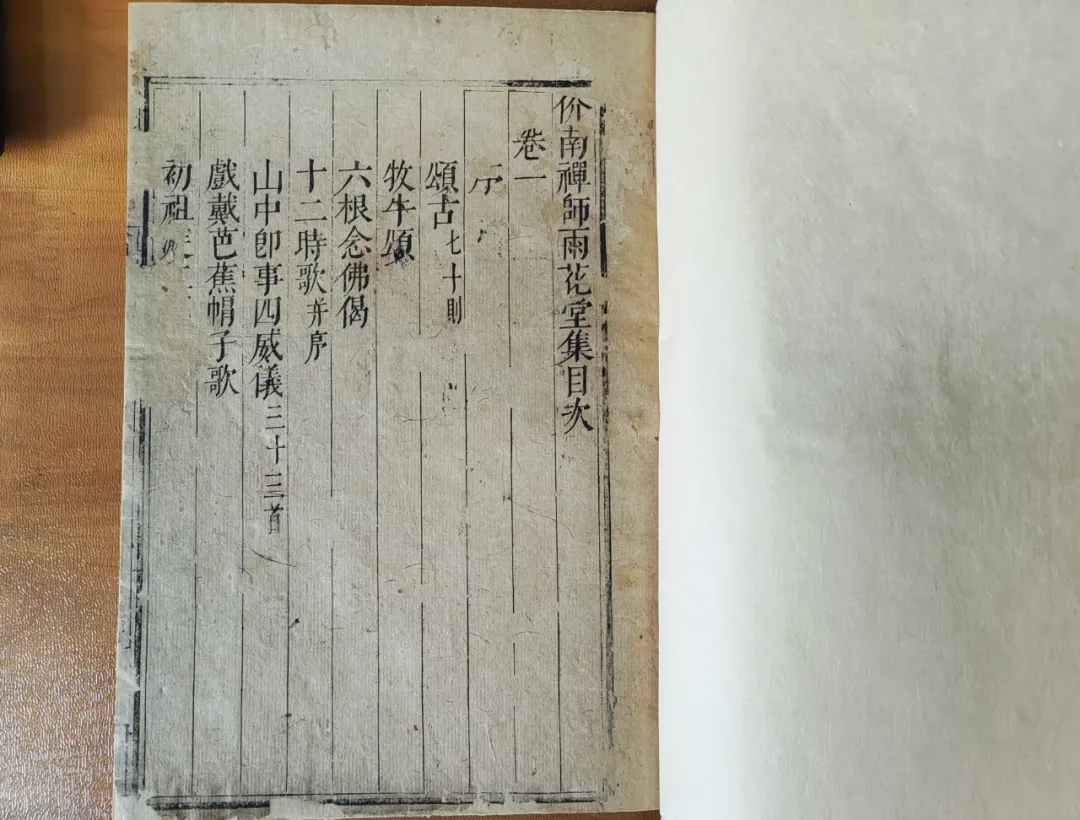 价南禪師雨花堂集目次
卷一
序
頌古七十則
牧牛頌
六根念佛偈
十二時歌并序
山中卽事四威儀三十三首
戲戴芭蕉帽子歌
初祖